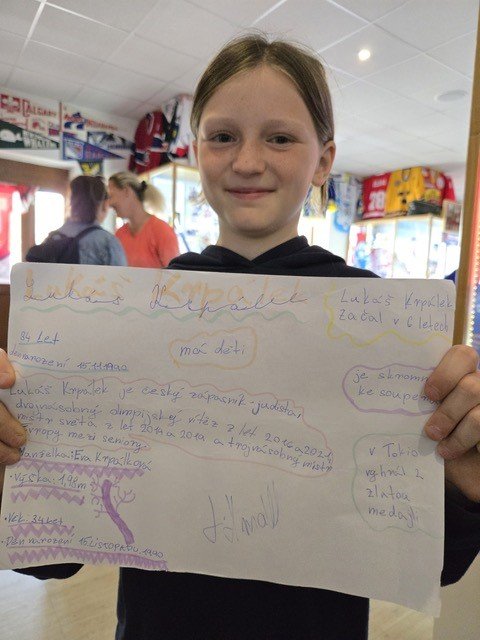 Lukáš Krpálek
Lukáš Krpálek
začal v 6 letech
34 let
narození 15.11.1990
má děti
je skromn
ke soupe
Lukáš Krpálek je český zápasník - judista,
dvojnásobný olimpijský vítěz z let 2016 a 2021,
mistr světa z let 2014 a 2019 a trojnásobný mistr
Evropy mezi seniory.
Manželka: Eva Krpálková
• Výška: 1,98 m
v Tokiu
vyhrál 2
zlatou
medajli
• Věk: 34 let
• Den narození 15. LISTOPADU 1990
CALGARY